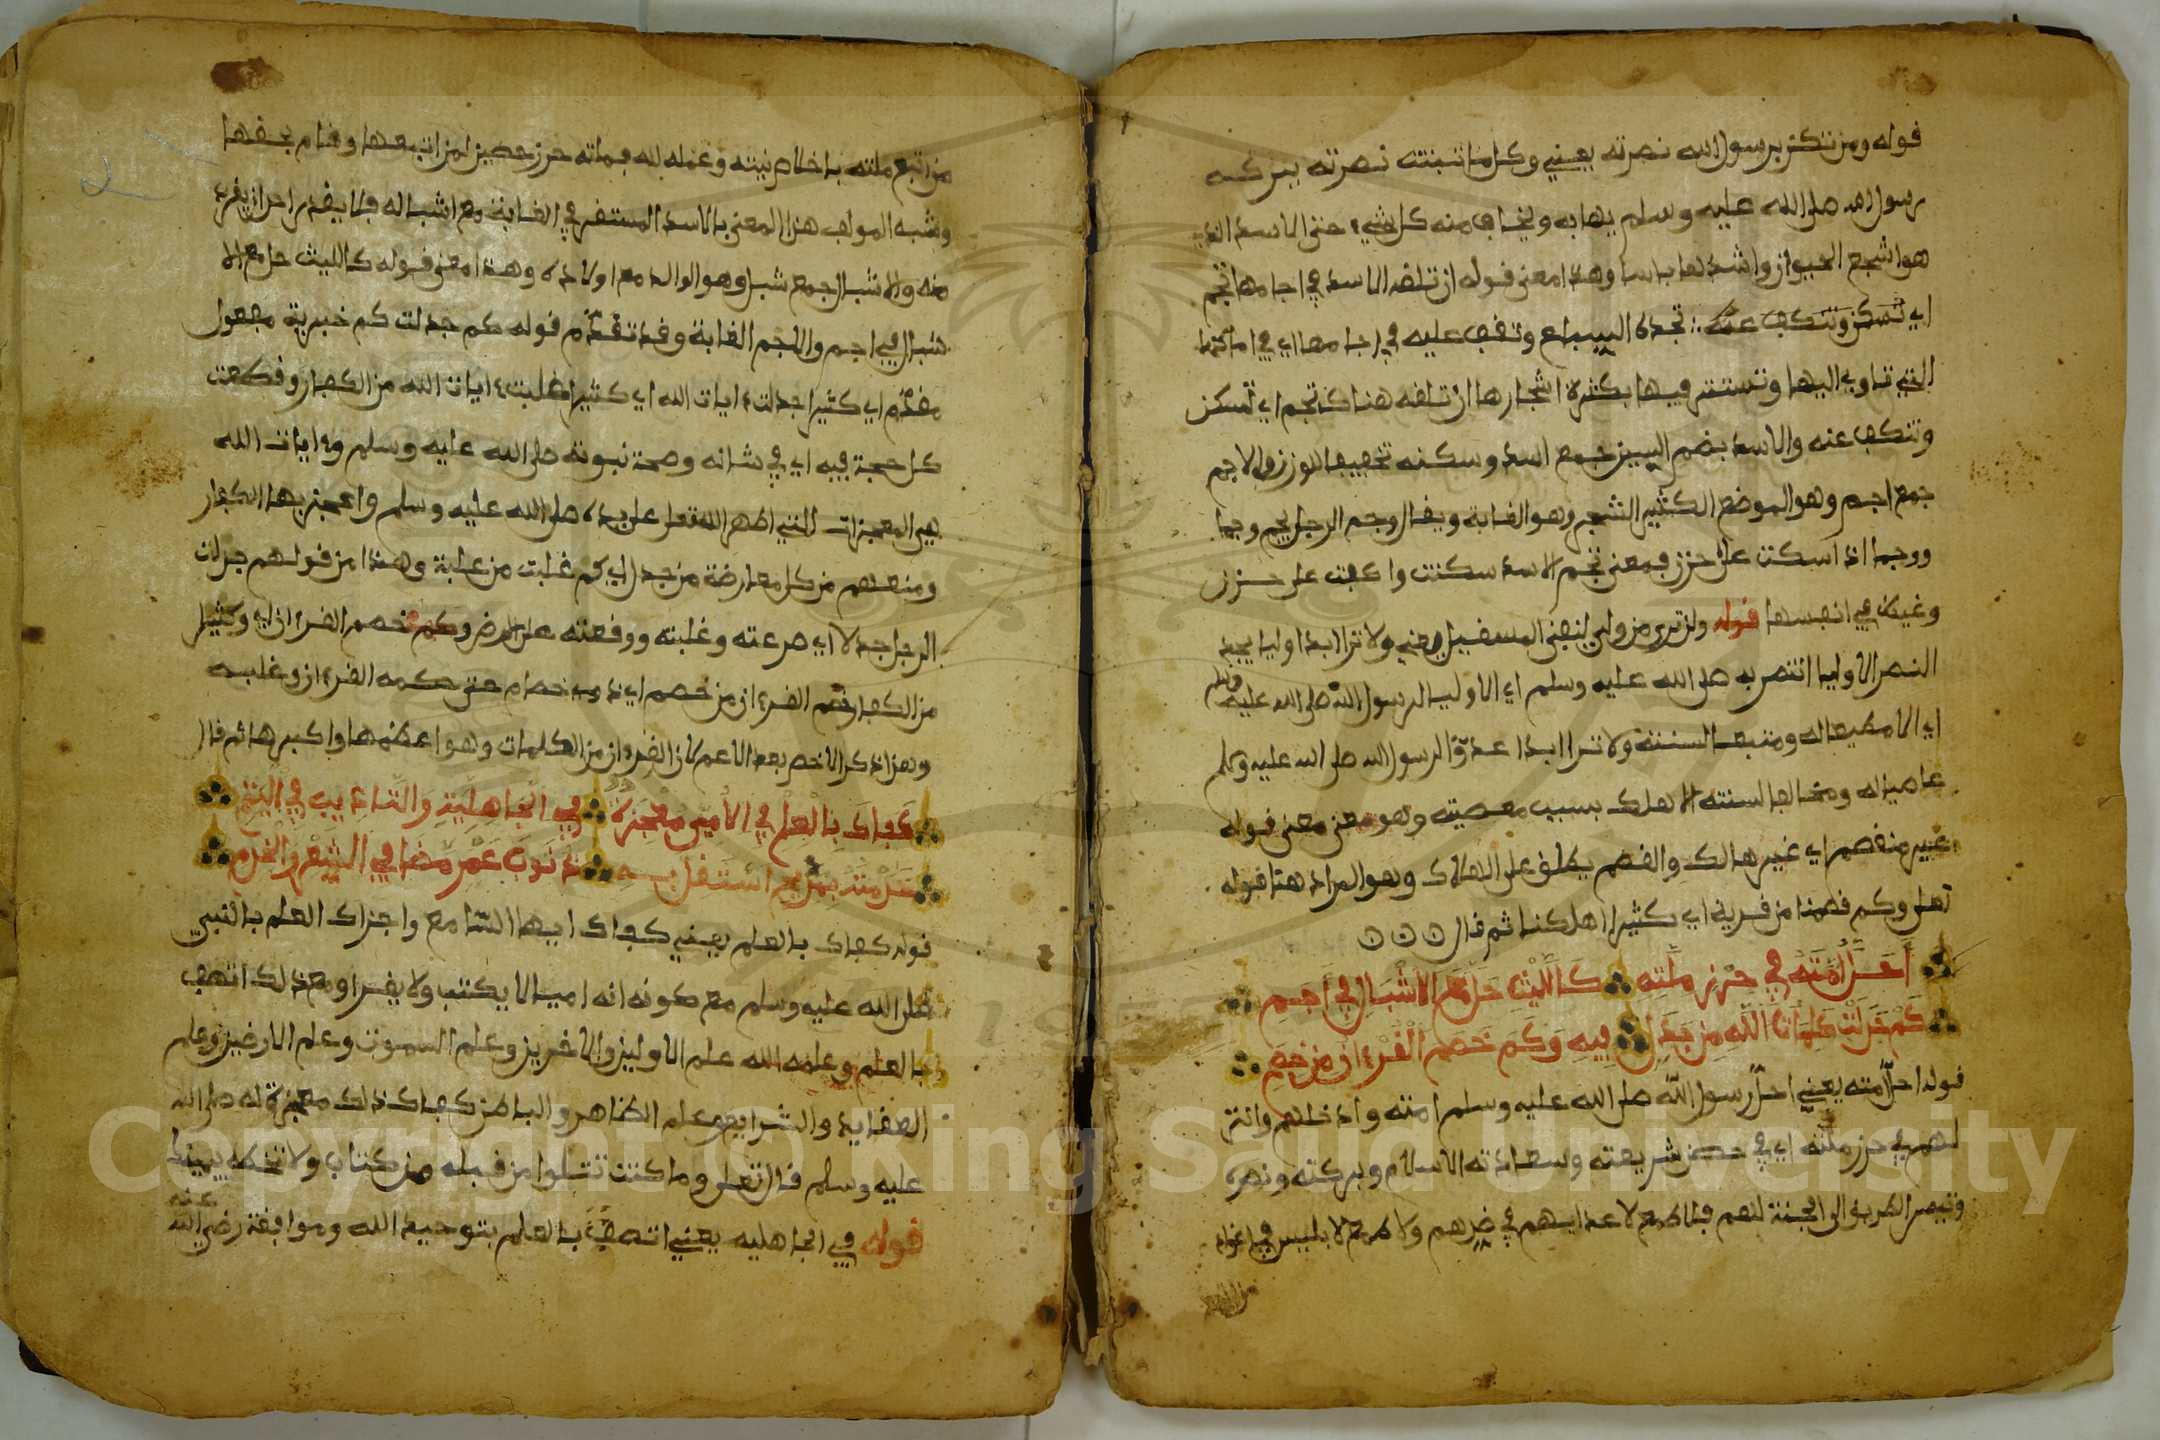 قوله ومن تكن برسول الله نصرته يعني وكل ما تثبتت نصرته ببركة
رسول الله صلى الله عليه وسلم يهابه ويخاف منه كل شيء حتى الاسد الذي
هو اشجع الحيوان واشدها باسا وهذا معنى قوله ان تلقه الاسد في اجامها تجم
اي تسكن وتنكف عنه تجده السباع وتقف عليه في اجامها اي في اماكنها
التي تاوي اليها وتستتر فيها بكثرة اشجارها ان تلقه هناك تجم اي تسكن
وتنكف عنه والاسد بضم السين جمع اسد وسكنه تخفيفا للوزن والاجم
جمع اجم وهو الموضع الكثير الشجر وهو الغابة ويقال وجم الرجل يجم وجما
ووجما اذا سكت على حزن فمعنى تجم الاسد سكتت واكفت على حزن
وغيظ في انفسها قوله ولن ترى من ولي لنفي المستقبل يعني ولا ترا ابدا وليا يجد
النصر الا وليا انتصر به صلى الله عليه وسلم اي الا وليا لرسول الله صلى الله عليه وسلم
اي الا مطيعا له ومتبعا لسنته ولا ترا ابدا عدوا لرسول الله صلى الله عليه وسلم
عاصيا له ومخالفا لسنته الا هلك بسبب معصيته وهو معنى معنى قوله
غير منقصم اي غير هالك والقصم يطلق على الهلاك وهو المراد هنا قوله
تعلى وكم قصمنا من قرية اي كثيرا اهلكنا ثم قال
أحل أمته في حرز ملته كالليث حل مع الأشبال في أجم
كم جدلت كلمات الله من جدل فيه وكم خصم القرءان من خصم
قوله احل امته يعني احل رسول الله صلى الله عليه وسلم امته وادخلهم وانزل
لهم في حرز ملته اي في حصن شريعته وسعادته الاسلام وبركته ونصره
وتيسر الطريق الى الجنة لهم فلا طمع لاعدايهم في ضرهم ولا طمع لابليس في اغواء
من اتبع ملته باخلاص نيته وعمله لله فملته حرز حصين لمن اتبعها وقام بحقها
وشبه المولف هذا المعنى بالاسد المستقر في الغابة مع اشباله فلا يقدر احد ان يقرب
منه والاشبال جمع شبل وهو الوالد مع اولاده وهذا معنى قوله كالليث حل مع الا
شبال في اجم والاجم الغابة وقد تقدم قوله كم جدلت كم خبرية مفعول
مقدم اي كثيرا جدلت ايات الله اي كثيرا غلبت ايات الله من الكفار وقطعت
كل حجة فيه اي في شانه وصحة نبوته صلى الله عليه وسلم وايات الله
هي المعجزات التي اظهر الله تعلى على يده صلى الله عليه وسلم واعجز بها الكفار
ومنعهم من كل معارضة من جدل اي كم غلبت من غلبة وهذا من قولهم جدلت
الرجل جدلا اي صرعته وغلبته ووقعته على الارض وكم خصم القرءان اي وكثيرا
من الكفار خصم القرءان من خصم اي ذوي خصام حتى حكمه القرءان وغلبه
وهذا ذكر الاخص بعد الاعم لان القرءان من الكلمات وهو اعظمها واكبرها ثم قال
كفاك بالعلم في الأمي معجزة في الجاهلية والتاديب في اليتم
خدمته بمديح استقيل به ذنوب عمر مضى في الشعر والخدم
قوله كفاك بالعلم يعني كفاك ايها السامع واجزاك العلم بالنبي
صلى الله عليه وسلم مع كونه انه اميا لا يكتب ولا يقرا ومع ذلك اتصف
بالعلم وعلمه الله علم الاولين والاخرين وعلم السموت وعلم الارضين وعلم
العقايد والشرايع وعلم الظاهر والباطن كفاك ذلك معجزة له صلى الله
عليه وسلم قال تعلى وما كنت تتلوا من قبله من كتاب ولا تخطه بيمينك
قوله في الجاهلية يعني اتصف بالعلم بتوحيد الله وموافقة رضى الله عنه
Copyright © King Saud University